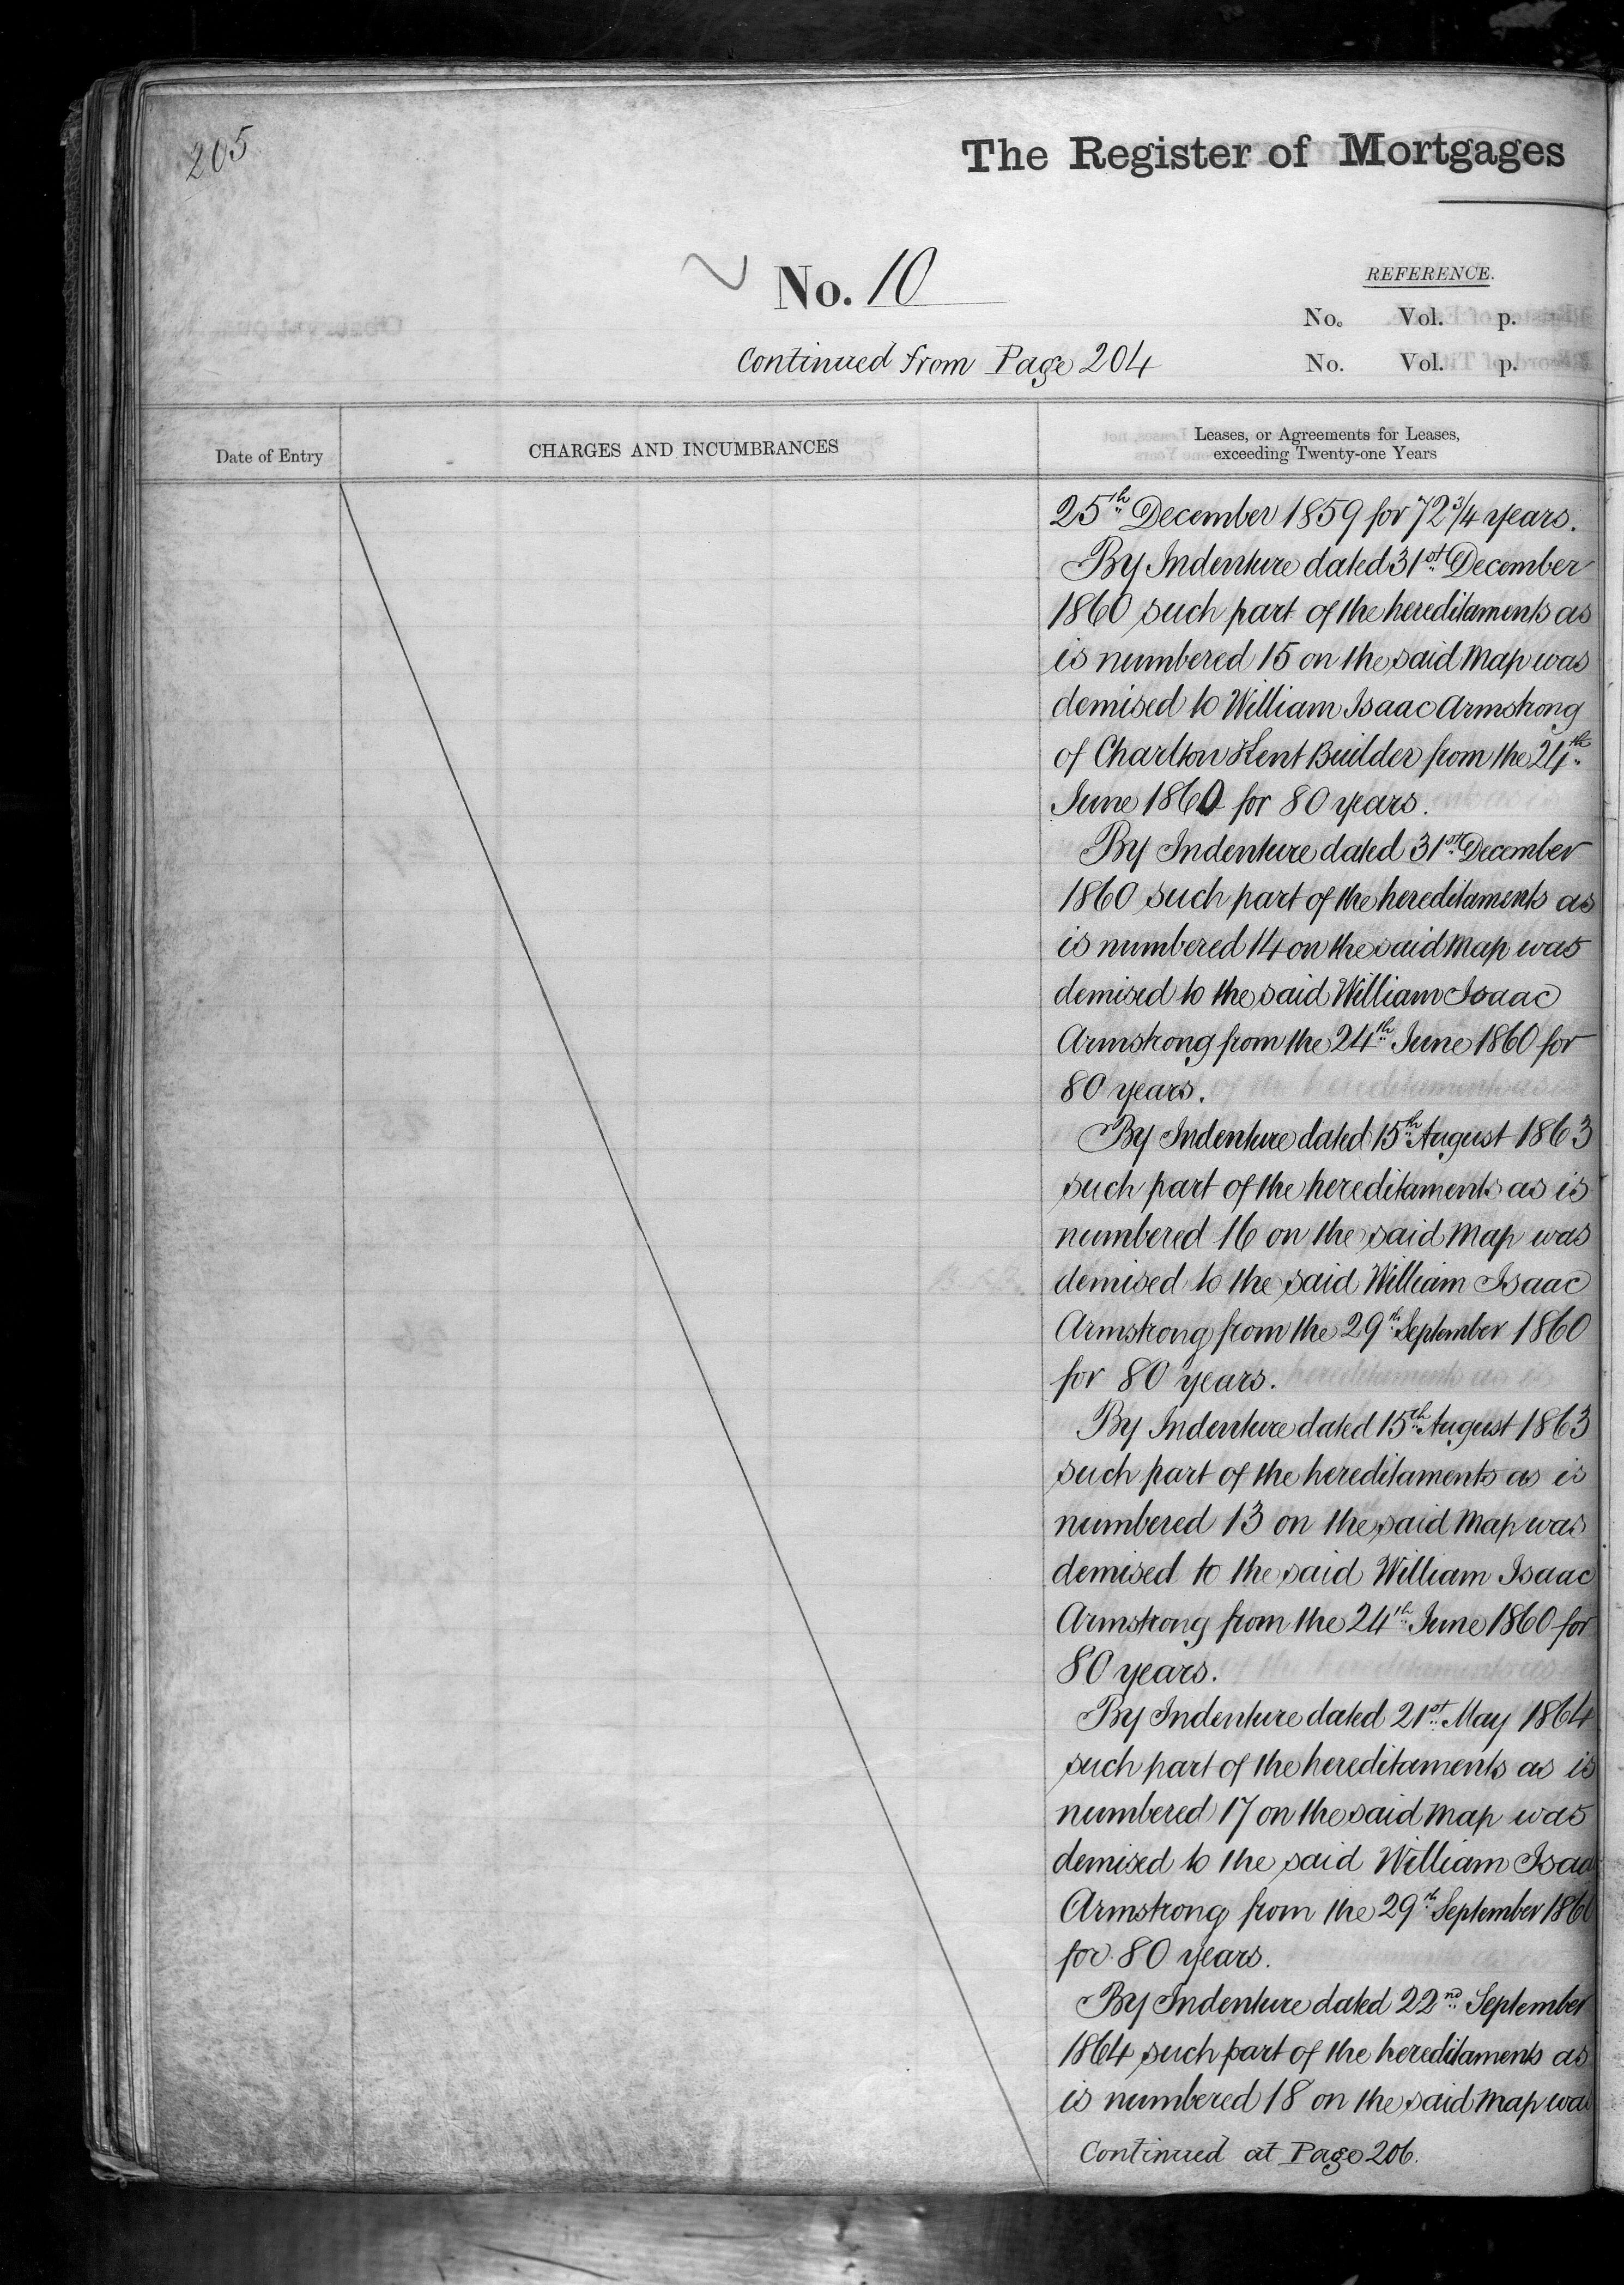 205
The Register of Mortgages
No. 10
REFERENCE.
No. Vol. p.
Continued from Page 204
No. Vol. p.
Date of Entry
CHARGES AND INCUMBRANCES
Leases, or Agreements for Leases,
exceeding Twenty-one Years
25th December 1859 for 72 3/4 years.
By Indenture dated 31st December
1860 such part of the hereditaments as
is numbered 15 on the said Map was
demised to William Isaac Armstrong
of Charlton Kent Builder from the 24th
June 1860 for 80 years.
By Indenture dated 31st December
1860 such part of the hereditaments as
is numbered 14 on the said Map was
demised to the said William Isaac
Armstrong from the 24th June 1860 for
80 years.
By Indenture dated 15th August 1863
such part of the hereditaments as is
numbered 16 on the said Map was
demised to the said William Isaac
Armstrong from the 29th September 1860
for 80 years.
By Indenture dated 15th August 1863
such part of the hereditaments as is
numbered 13 on the said Map was
demised to the said William Isaac
Armstrong from the 24th June 1860 for
80 years.
By Indenture dated 21st May 1864
such part of the hereditaments as is
numbered 17 on the said Map was
demised to the said William Isaac
Armstrong from the 29th September 1860
for 80 years.
By Indenture dated 22nd September
1864 such part of the hereditaments as
is numbered 18 on the said Map was
Continued at Page 206.